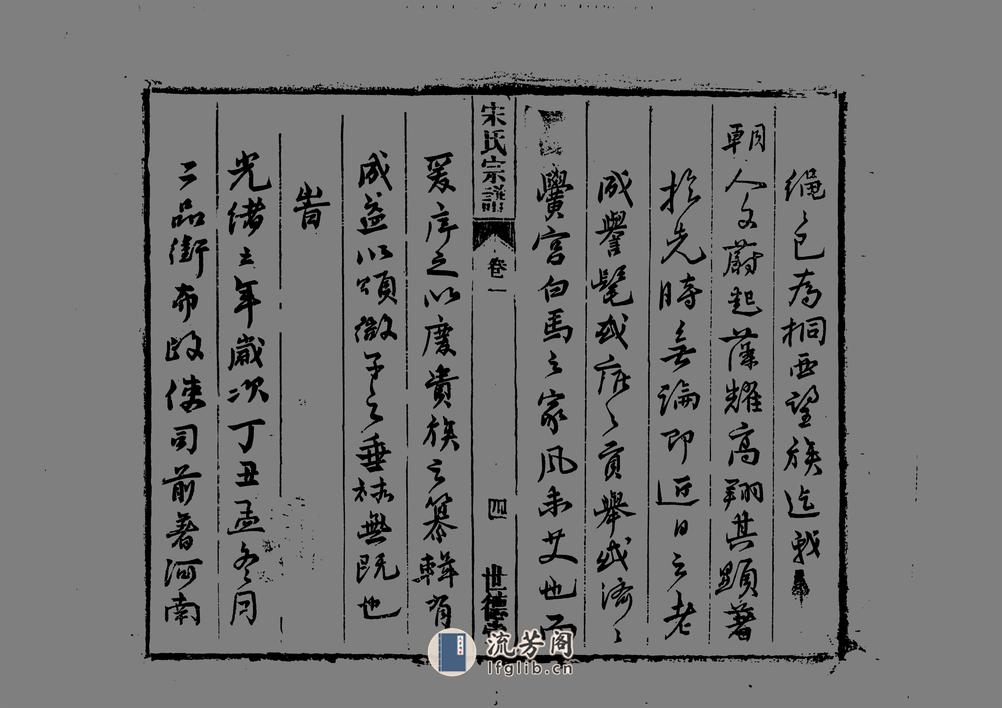 繩々已為桐西望族迄我
朝人文蔚起藻耀高翔其顯著
於先時無論即近日之老
成譽髦或庠々貢舉或濟々
黌宮白馬之家風未艾也而
宋氏宗譜 卷一 四 世德堂
爰序之以慶貴族之纂輯有
成並以頌微子之垂祿無既也
旹
光緒三年歲次丁丑孟冬月
二品銜布政使司前署河南
流芳阁
lfglib.cn